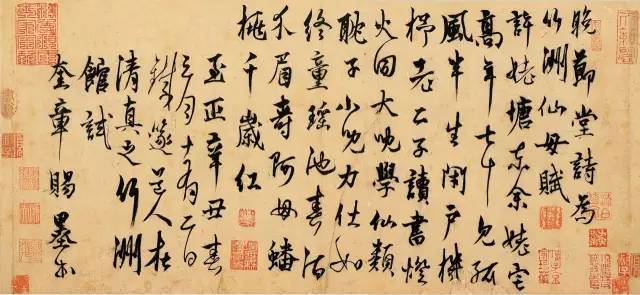 晚節堂詩為
竹洲仙母賦
許姥塘東余姥宅
高年七十見孤
風半生閉戶機
杼老二子讀書燈
火同大兒學仙類
聃子小兒力仕如
終童瑤池春酒
介眉壽阿母蟠
桃千歲紅
至正辛丑春
三月十有二日
鐵邃道人在
清真之竹洲
館試
奎章賜墨書